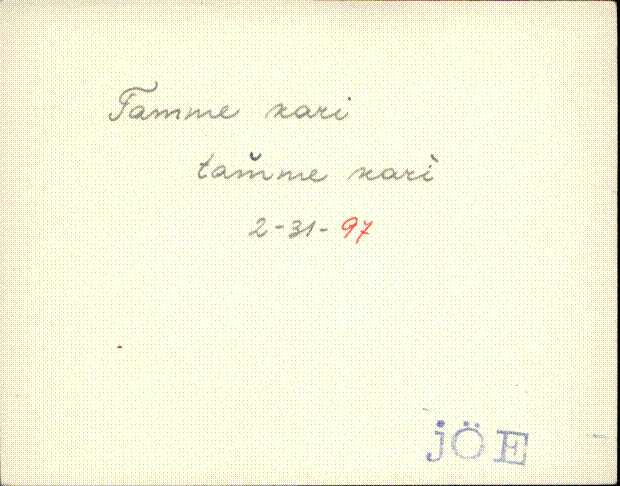 Tamme kari
tam̆me karì
2-31-97
jÖE